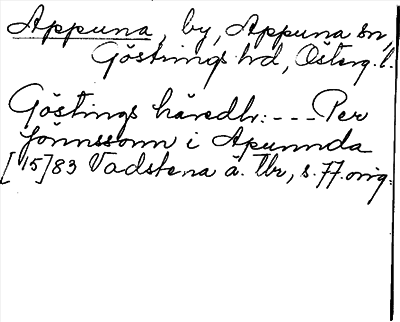 Appuna, by, Appuna sn,
Göstrings hd, Österg. l.
Göstings häredh: --- Per
Jonnssonn i Apunnda
[15]83 Vadstena ä. tbr, s. 77. orig.